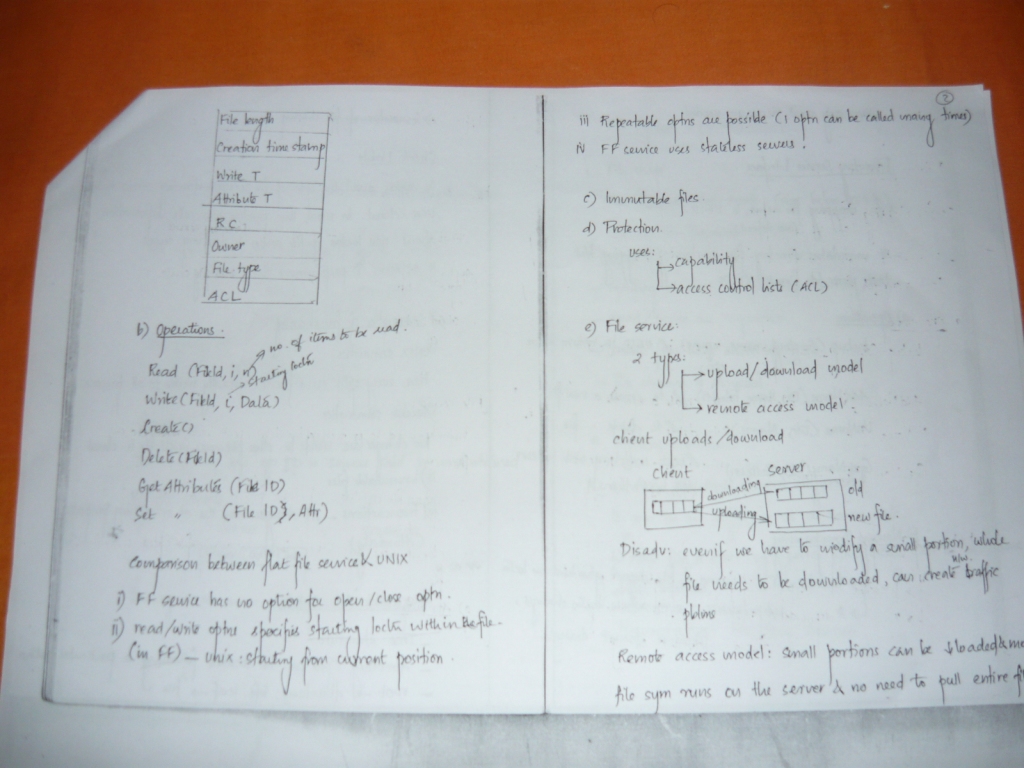 File length
Creation time stamp
Write T
Attribute T
RC
Owner
File type
ACL
b) Operations.
no. of items to be read.
Read (FileId, i, n)
starting locn
Write (FileId, i, Data)
Create()
Delete (FileId)
Get Attributes (File ID)
Set " (File ID, Attr)
Comparison between flat file service & UNIX
i) FF service has no option for open/close optn.
ii) read/write optns specifies starting locn within the file.
(in FF) – unix : starting from current position.
2
iii) Repeatable optns are possible (1 optn can be called many times)
iv FF service uses stateless servers.
c) Immutable files
d) Protection.
uses:
capability
access control lists (ACL)
e) File service:
2 types:
upload/download model
remote access model.
client uploads/download
client server
downloading old
uploading new file.
Disadv: even if we have to modify a small portion, whole
n/w
file needs to be downloaded, can create traffic
pblms
Remote access model: small portions can be ↓loaded &
file sym runs on the server & no need to pull entire